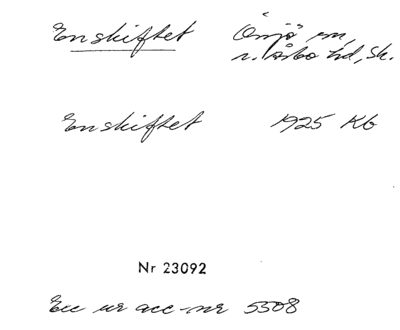 Enskiftet Önjö sn,
n. Åsbo hd, Sk.
Enskiftet 1925 Kb
Nr 23092
Exc ur acc-nr 5508